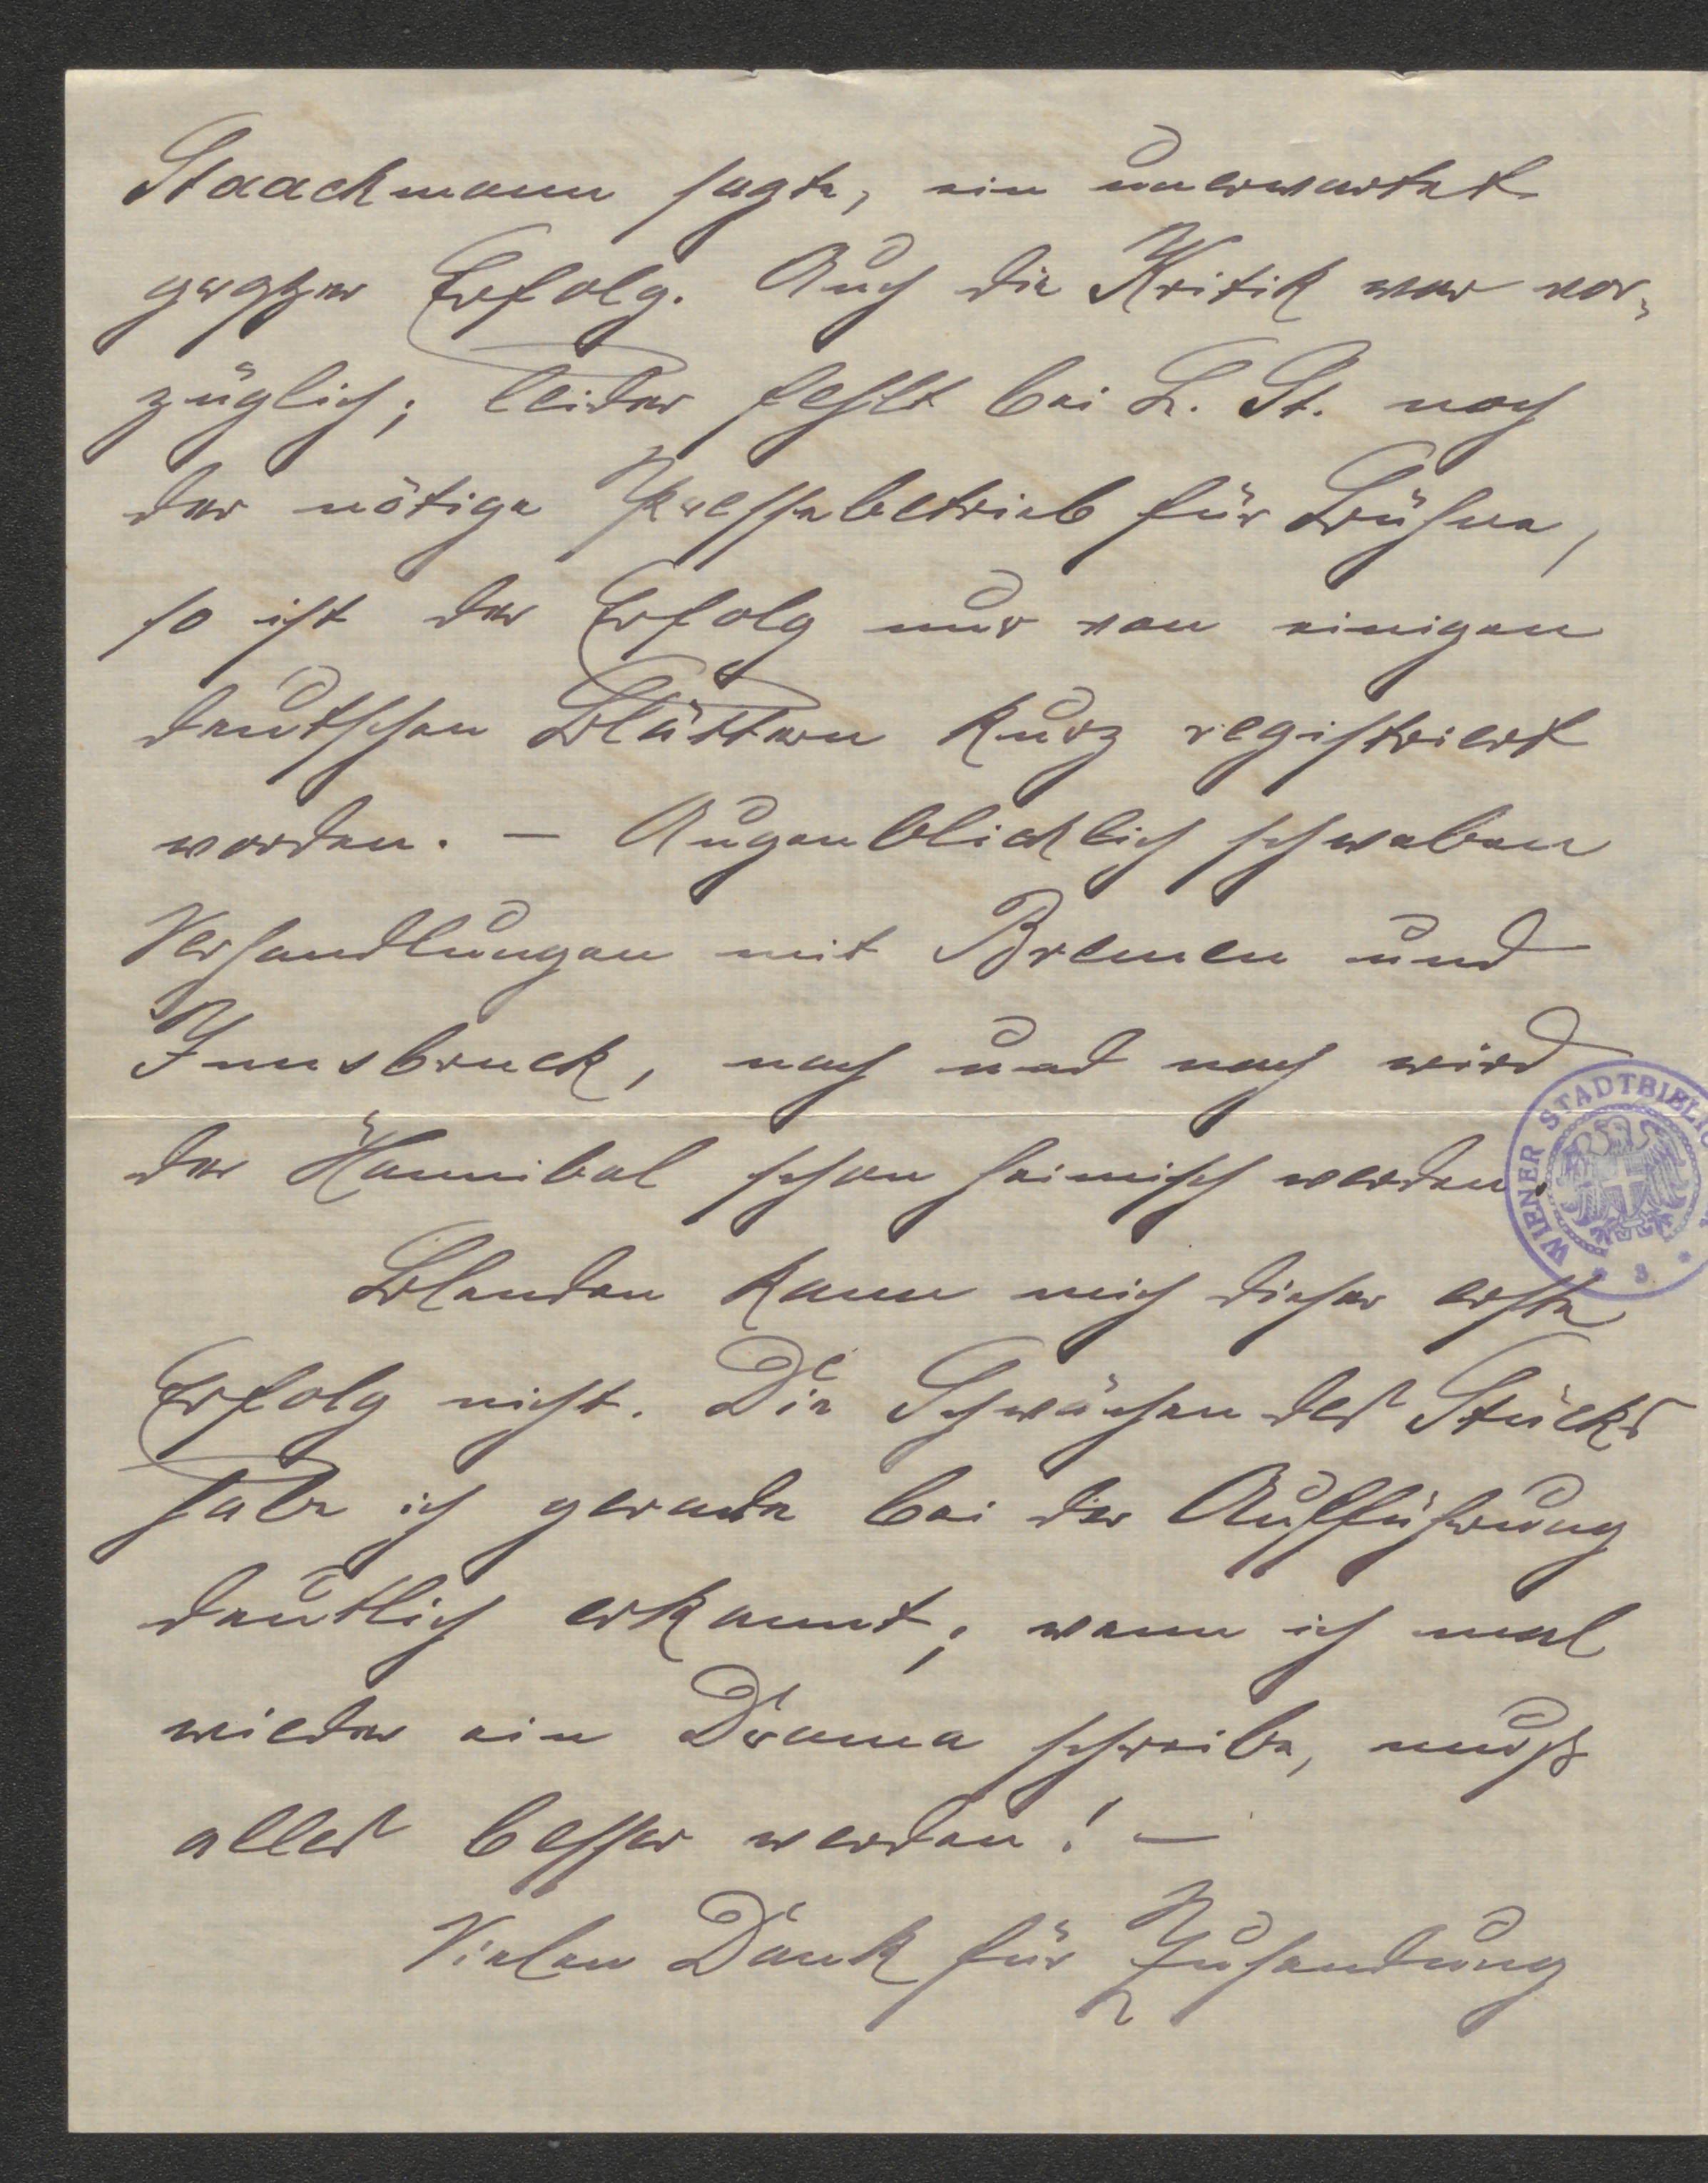 Staackmann sagte, ein unerwartet
großer Erfolg. Auch die Kritik war vor-
züglich; leider fehlt bei L. St. noch
der nötige Pressebetrieb für Bühne,
so ist der Erfolg nur von einigen
deutschen Blättern kurz registriert
worden. — Augenblicklich schweben
Verhandlungen mit Bremen und
Innsbruck, nach und nach wird
der Hannibal schon heimisch werden.
Blenden kann mich dieser erste
Erfolg nicht. Die Schwächen des Stücks
habe ich gerade bei der Aufführung
deutlich erkannt; wenn ich mal
wieder ein Drama schreibe, muß
alles besser werden! —
Vielen Dank für Zusendung
WIENER STADTBIBLIO
* 3 *